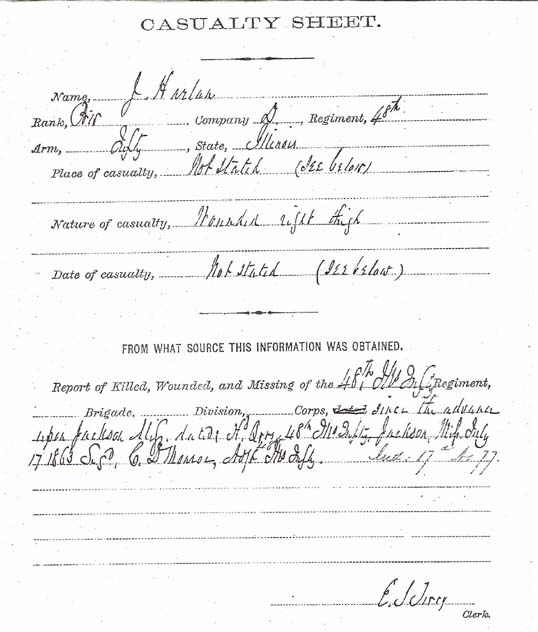 CASUALTY SHEET.
Name, J. Harlan
Rank, Priv Company D, Regiment, 48th
Arm, Infty, State, Illinois
Place of casualty, Not Stated (See below)
Nature of casualty, Wounded right thigh
Date of casualty, Not stated (See below.)
FROM WHAT SOURCE THIS INFORMATION WAS OBTAINED.
Report of Killed, Wounded, and Missing of the 48th Ills Infty Regiment,
Brigade, Division, Corps, since the advance
upon Jackson Miss. dated Hd Qrs, 48th Ills Infty, Jackson, Miss July
17 1863 Sigd, Monroe, Ills Infty.
Clerk.